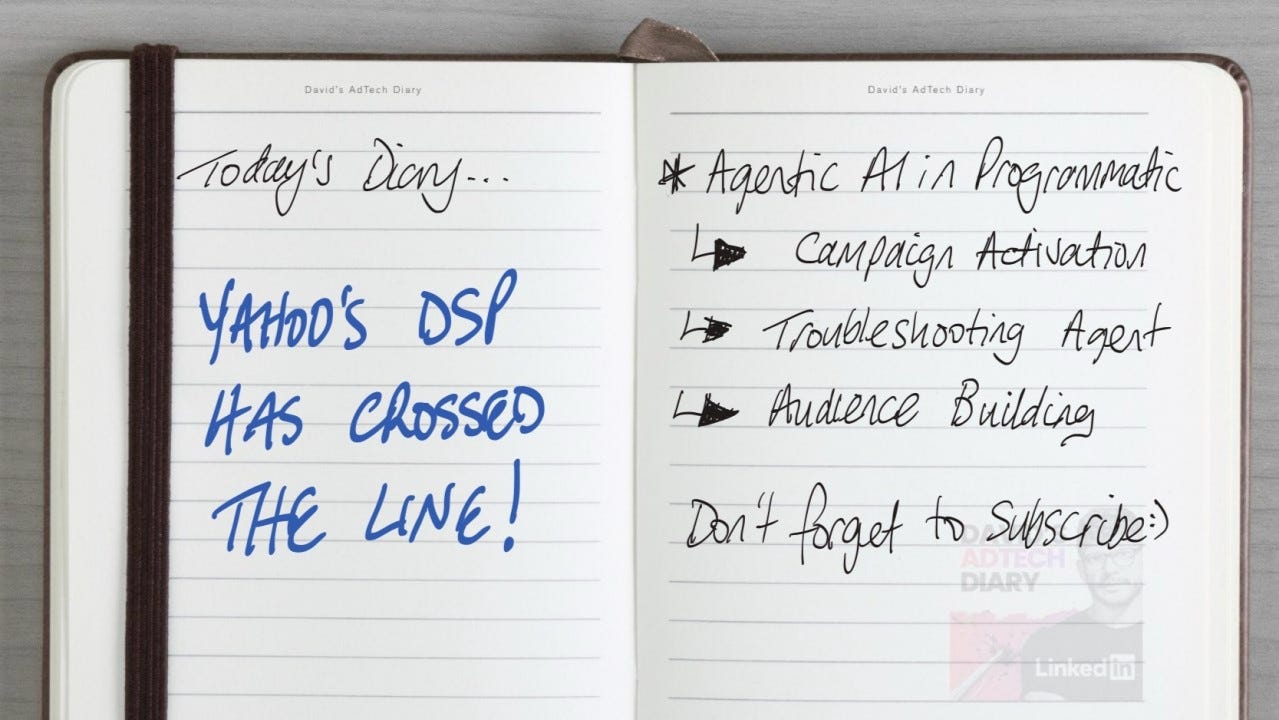 David's AdTech Diary
Today's Diary...
YAHOO'S DSP
HAS CROSSED
THE LINE!
David's AdTech Diary
* Agentic AI in Programmatic
↳ Campaign Activation
↳ Troubleshooting Agent
↳ Audience Building
Don't forget to Subscribe:)
ADTECH
DIARY
Linked in